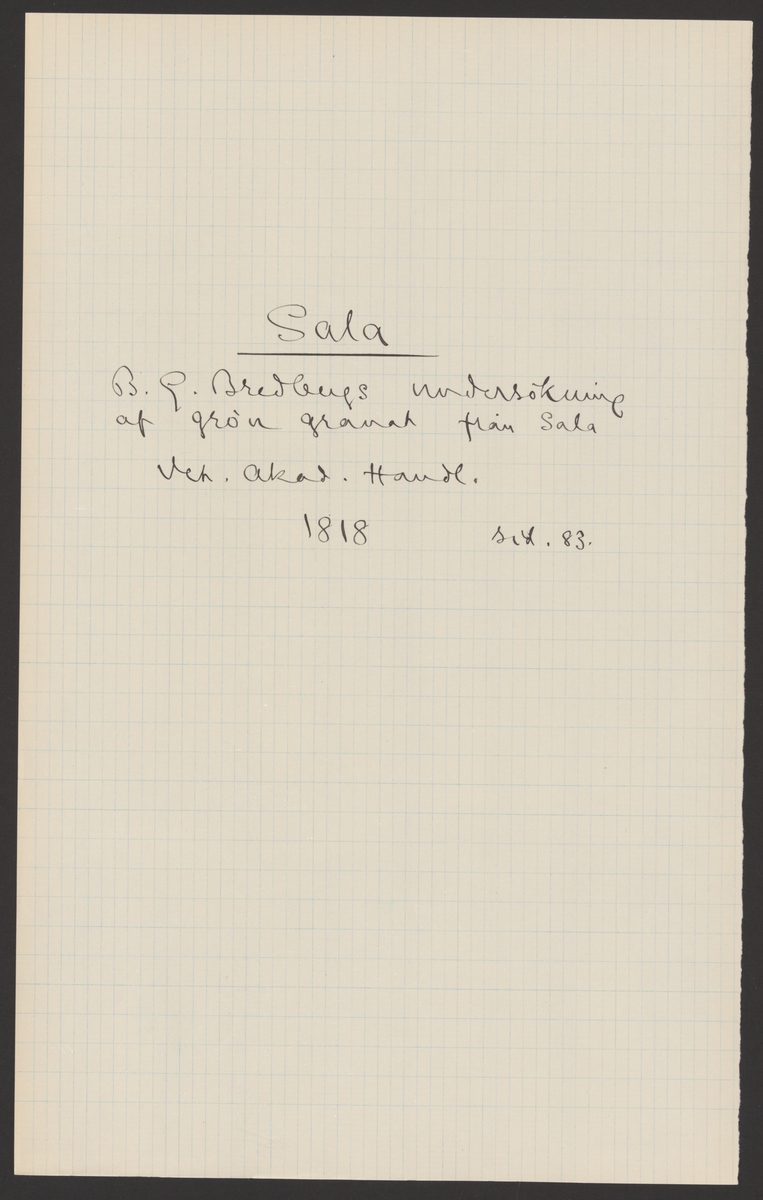 Sala
B. G. Bredbergs undersökning
af grön granat från Sala
Vet. Akad. Handl.
1818 sid. 83.